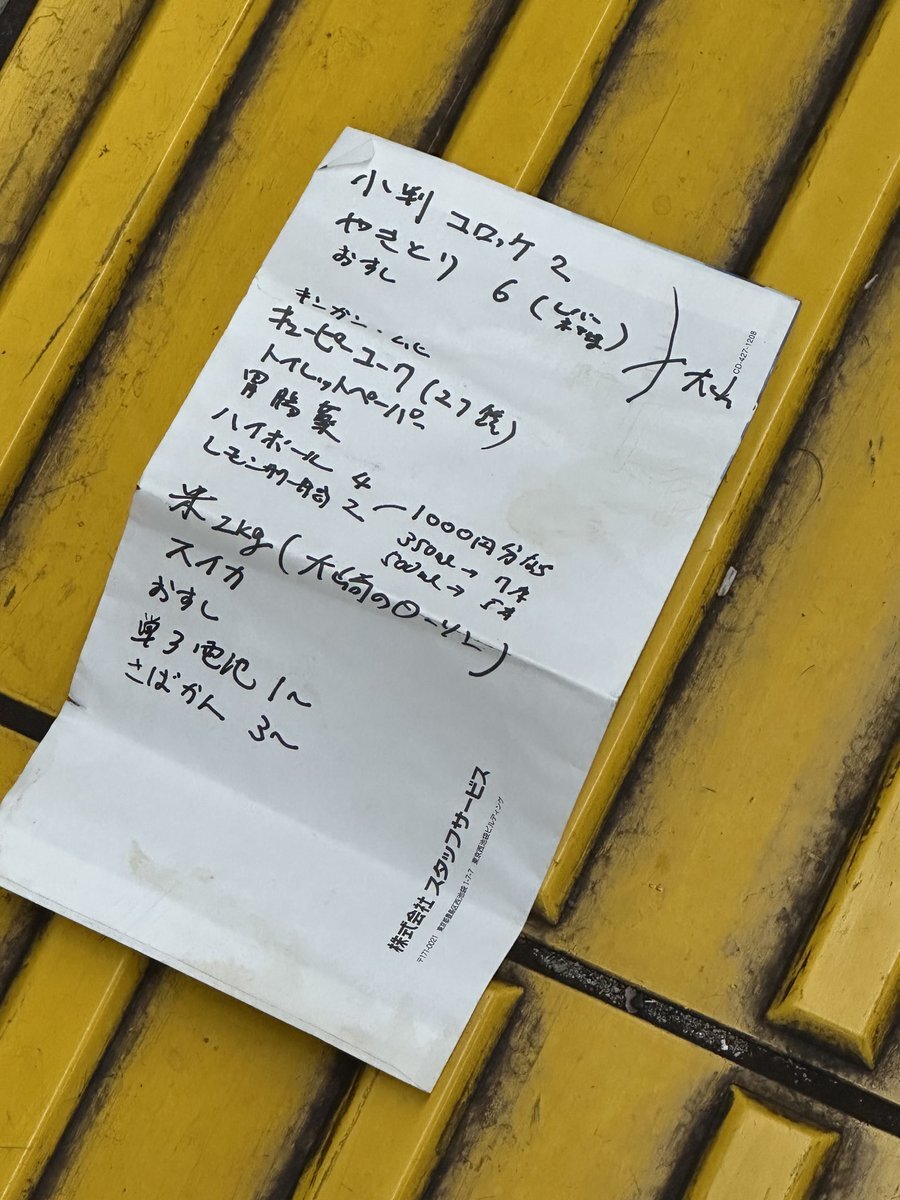 小判コロッケ 2
やきとり 6 (レバー
おすし
キンカン・
キューピーコーワ (27錠)
トイレットペーパー
胃腸薬
ハイボール 4
レモン 2 1000円分なら
350ml→7本
500ml→5本
米 2kg (大崎のローソン)
スイカ
おすし
単3電池 1〜
さばかん 3〜
CD-427-1208
株式会社 スタッフサービス
〒171-0021 東京都豊島区西池袋1-7-7 東京西池袋ビルディング